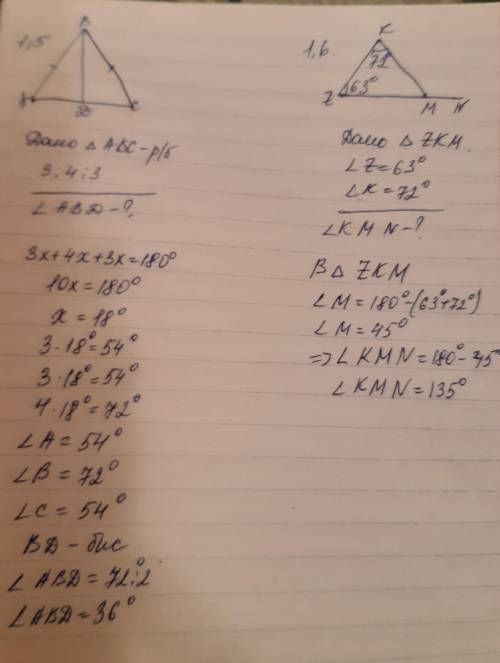 1,5
B
A
D
C
Дано △ ABC - р/б
3:4:3
∠ ABD - ?
3x+4x+3x=180°
10x=180°
x = 18°
3·18°=54°
3·18°=54°
4·18°=72°
∠A = 54°
∠B = 72°
∠C = 54°
BD - бис
∠ ABD = 72°:2
∠ABD = 36°
1,6.
K
72°
Z
63°
M
N
Дано △ ZKM.
∠Z=63°
∠K=72°
∠KMN-?
В △ ZKM
∠M=180°-(63°+72°)
∠M=45°
=> ∠KMN=180°-45°
∠KMN=135°